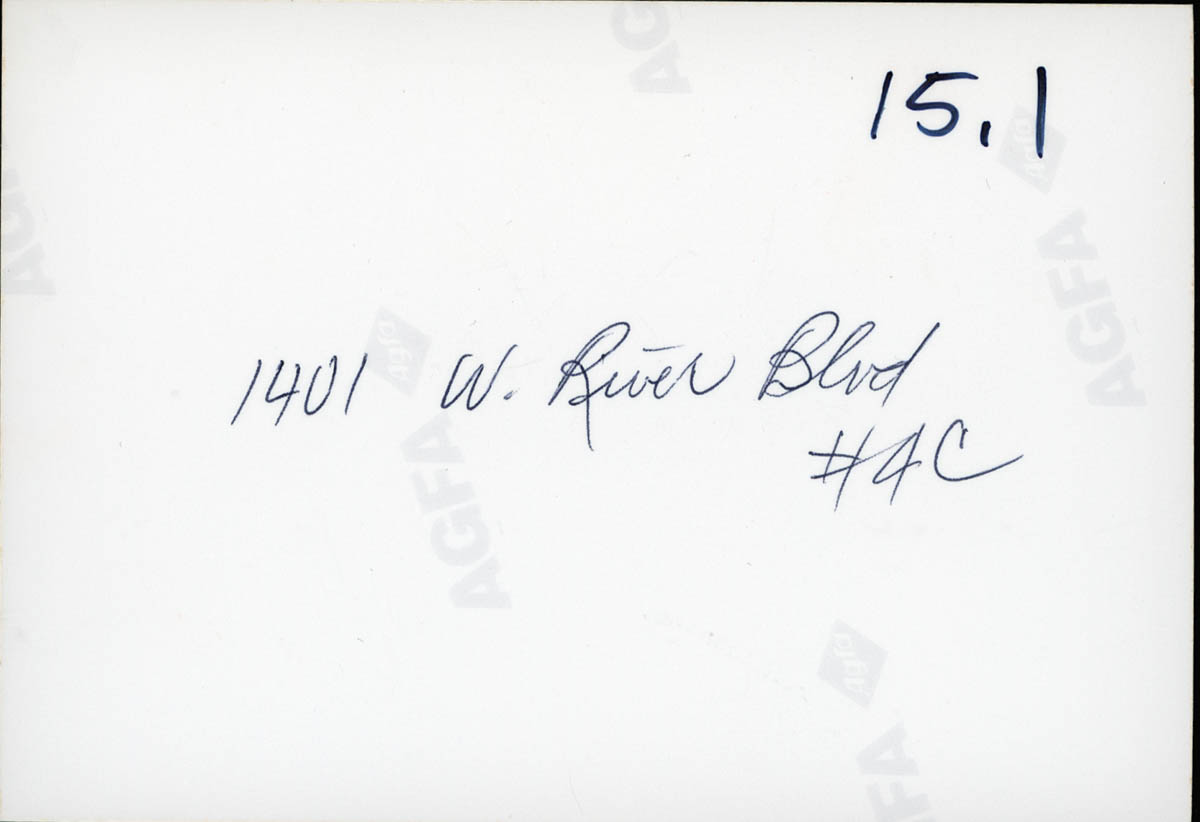 15.1
1401 W. River Blvd
#4C
AGFA
Agfa
AGFA
Agfa
AGFA
Agfa
AGFA